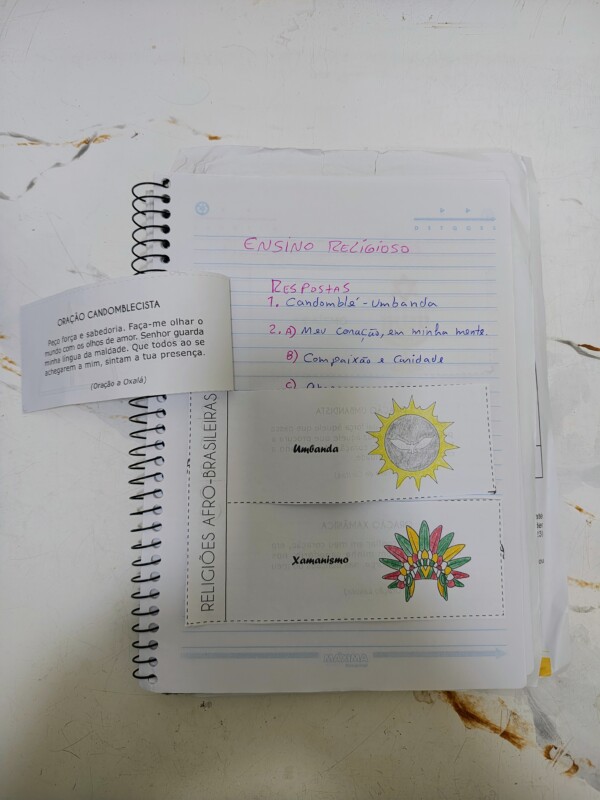 ENSINO RELIGIOSO
RESPOSTAS
1. Candomblé - Umbanda
2. A) Meu coração, em minha mente.
B) Compaixão e Caridade
C)
ORAÇÃO CANDOMBLECISTA
Peço força e sabedoria. Faça-me olhar o
mundo com os olhos de amor. Senhor guarda
minha língua da maldade. Que todos ao se
achegarem a mim, sintam a tua presença.
(Oração a Oxalá)
RELIGIÕES AFRO-BRASILEIRAS
Umbanda
Xamanismo